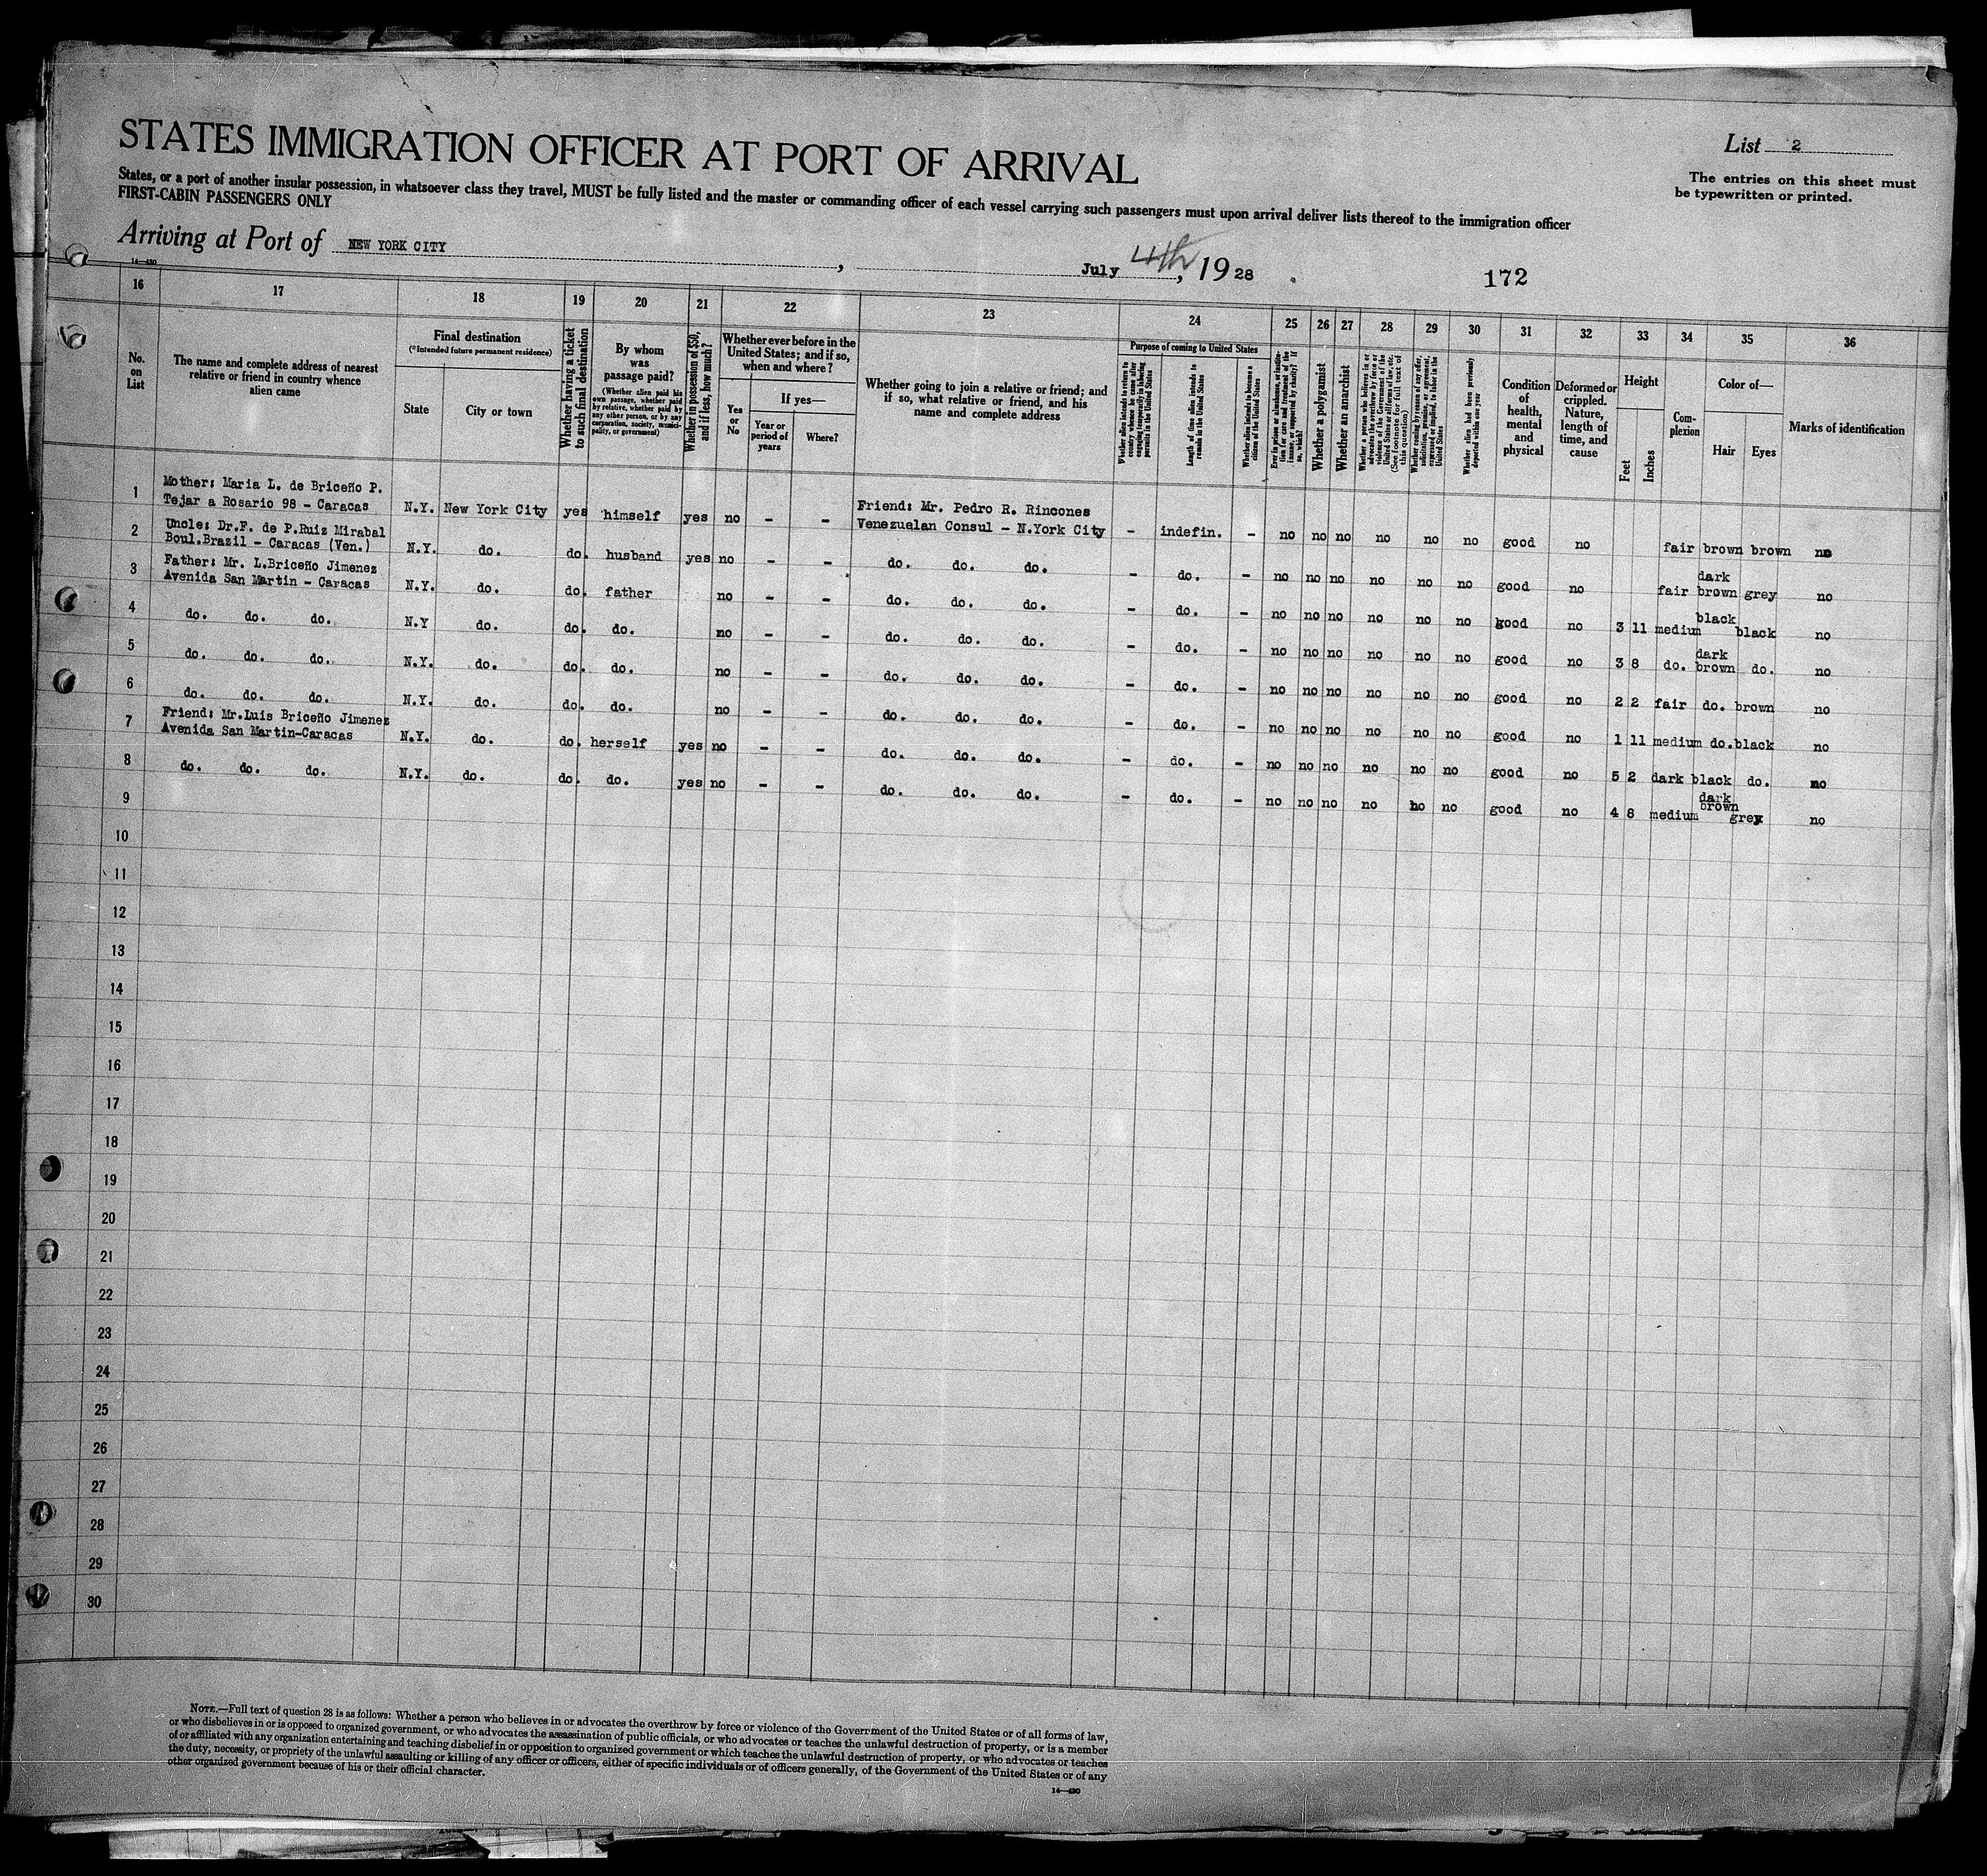 STATES IMMIGRATION OFFICER AT PORT OF ARRIVAL
List 2
The entries on this sheet must
be typewritten or printed.
States, or a port of another insular possession, in whatsoever class they travel, MUST be fully listed and the master or commanding officer of each vessel carrying such passengers must upon arrival deliver lists thereof to the immigration officer
FIRST-CABIN PASSENGERS ONLY
Arriving at Port of NEW YORK CITY, July 4th, 1928
172
14—430
16 17 18 19 20 21 22 23 24 25 26 27 28 29 30 31 32 33 34 35 36
No. on List
The name and complete address of nearest relative or friend in country whence alien came
Final destination
(*Intended future permanent residence)
State
City or town
Whether having a ticket to such final destination
By whom was passage paid?
(Whether alien paid his own passage, whether paid by relative, whether paid by any other person, or by any corporation, society, municipality, or government)
Whether in possession of $50, and if less, how much?
Whether ever before in the United States; and if so, when and where?
Yes or No
If yes—
Year or period of years
Where?
Whether going to join a relative or friend; and if so, what relative or friend, and his name and complete address
Purpose of coming to United States
Whether alien intends to return to country whence he came after engaging temporarily in laboring pursuits in the United States
Length of time alien intends to remain in the United States
Whether alien intends to become a citizen of the United States
Ever in prison or almshouse, or institution for care and treatment of the insane, or supported by charity? If so, which?
Whether a polygamist
Whether an anarchist
Whether a person who believes in or advocates the overthrow by force or violence of the Government of the United States or all forms of law, etc. (See footnote for full text of this question)
Whether coming by reason of any offer, solicitation, promise, or agreement, expressed or implied, to labor in the United States
Whether alien had been previously deported within one year
Condition of health, mental and physical
Deformed or crippled. Nature, length of time, and cause
Height
Feet
Inches
Complexion
Color of—
Hair
Eyes
Marks of identification
1 Mother: Maria L. de Briceño P.
Tejar a Rosario 98 - Caracas N.Y. New York City yes himself yes no - - Friend: Mr. Pedro R. Rincones
Venezuelan Consul - N.York City - indefin. - no no no no no no good no fair brown brown no
2 Uncle: Dr.F. de P.Ruiz Mirabal
Boul.Brazil - Caracas (Ven.) N.Y. do. do. husband yes no - - do. do. do. - do. - no no no no no no good no fair dark brown grey no
3 Father: Mr. L.Briceño Jimenez
Avenida San Martin - Caracas N.Y. do. do. father no - - do. do. do. - do. - no no no no no no good no 3 11 medium black black no
4 do. do. do. N.Y do. do. do. no - - do. do. do. - do. - no no no no no no good no 3 8 do. dark brown do. no
5 do. do. do. N.Y. do. do. do. no - - do. do. do. - do. - no no no no no no good no 2 2 fair do. brown no
6 do. do. do. N.Y. do. do. do. no - - do. do. do. - do. - no no no no no no good no 1 11 medium do. black no
7 Friend: Mr.Luis Briceño Jimenez
Avenida San Martin-Caracas N.Y. do. do. herself yes no - - do. do. do. - do. - no no no no no no good no 5 2 dark black do. no
8 do. do. do. N.Y. do. do. do. yes no - - do. do. do. - do. - no no no no no no good no 4 8 medium dark brown grey no
9
10
11
12
13
14
15
16
17
18
19
20
21
22
23
24
25
26
27
28
29
30
NOTE.—Full text of question 28 is as follows: Whether a person who believes in or advocates the overthrow by force or violence of the Government of the United States or of all forms of law,
or who disbelieves in or is opposed to organized government, or who advocates the assassination of public officials, or who advocates or teaches the unlawful destruction of property, or is a member
of or affiliated with any organization entertaining and teaching disbelief in or opposition to organized government or which teaches the unlawful destruction of property, or who advocates or teaches
the duty, necessity, or propriety of the unlawful assaulting or killing of any officer or officers, either of specific individuals or of officers generally, of the Government of the United States or of any
other organized government because of his or their official character.
14—430